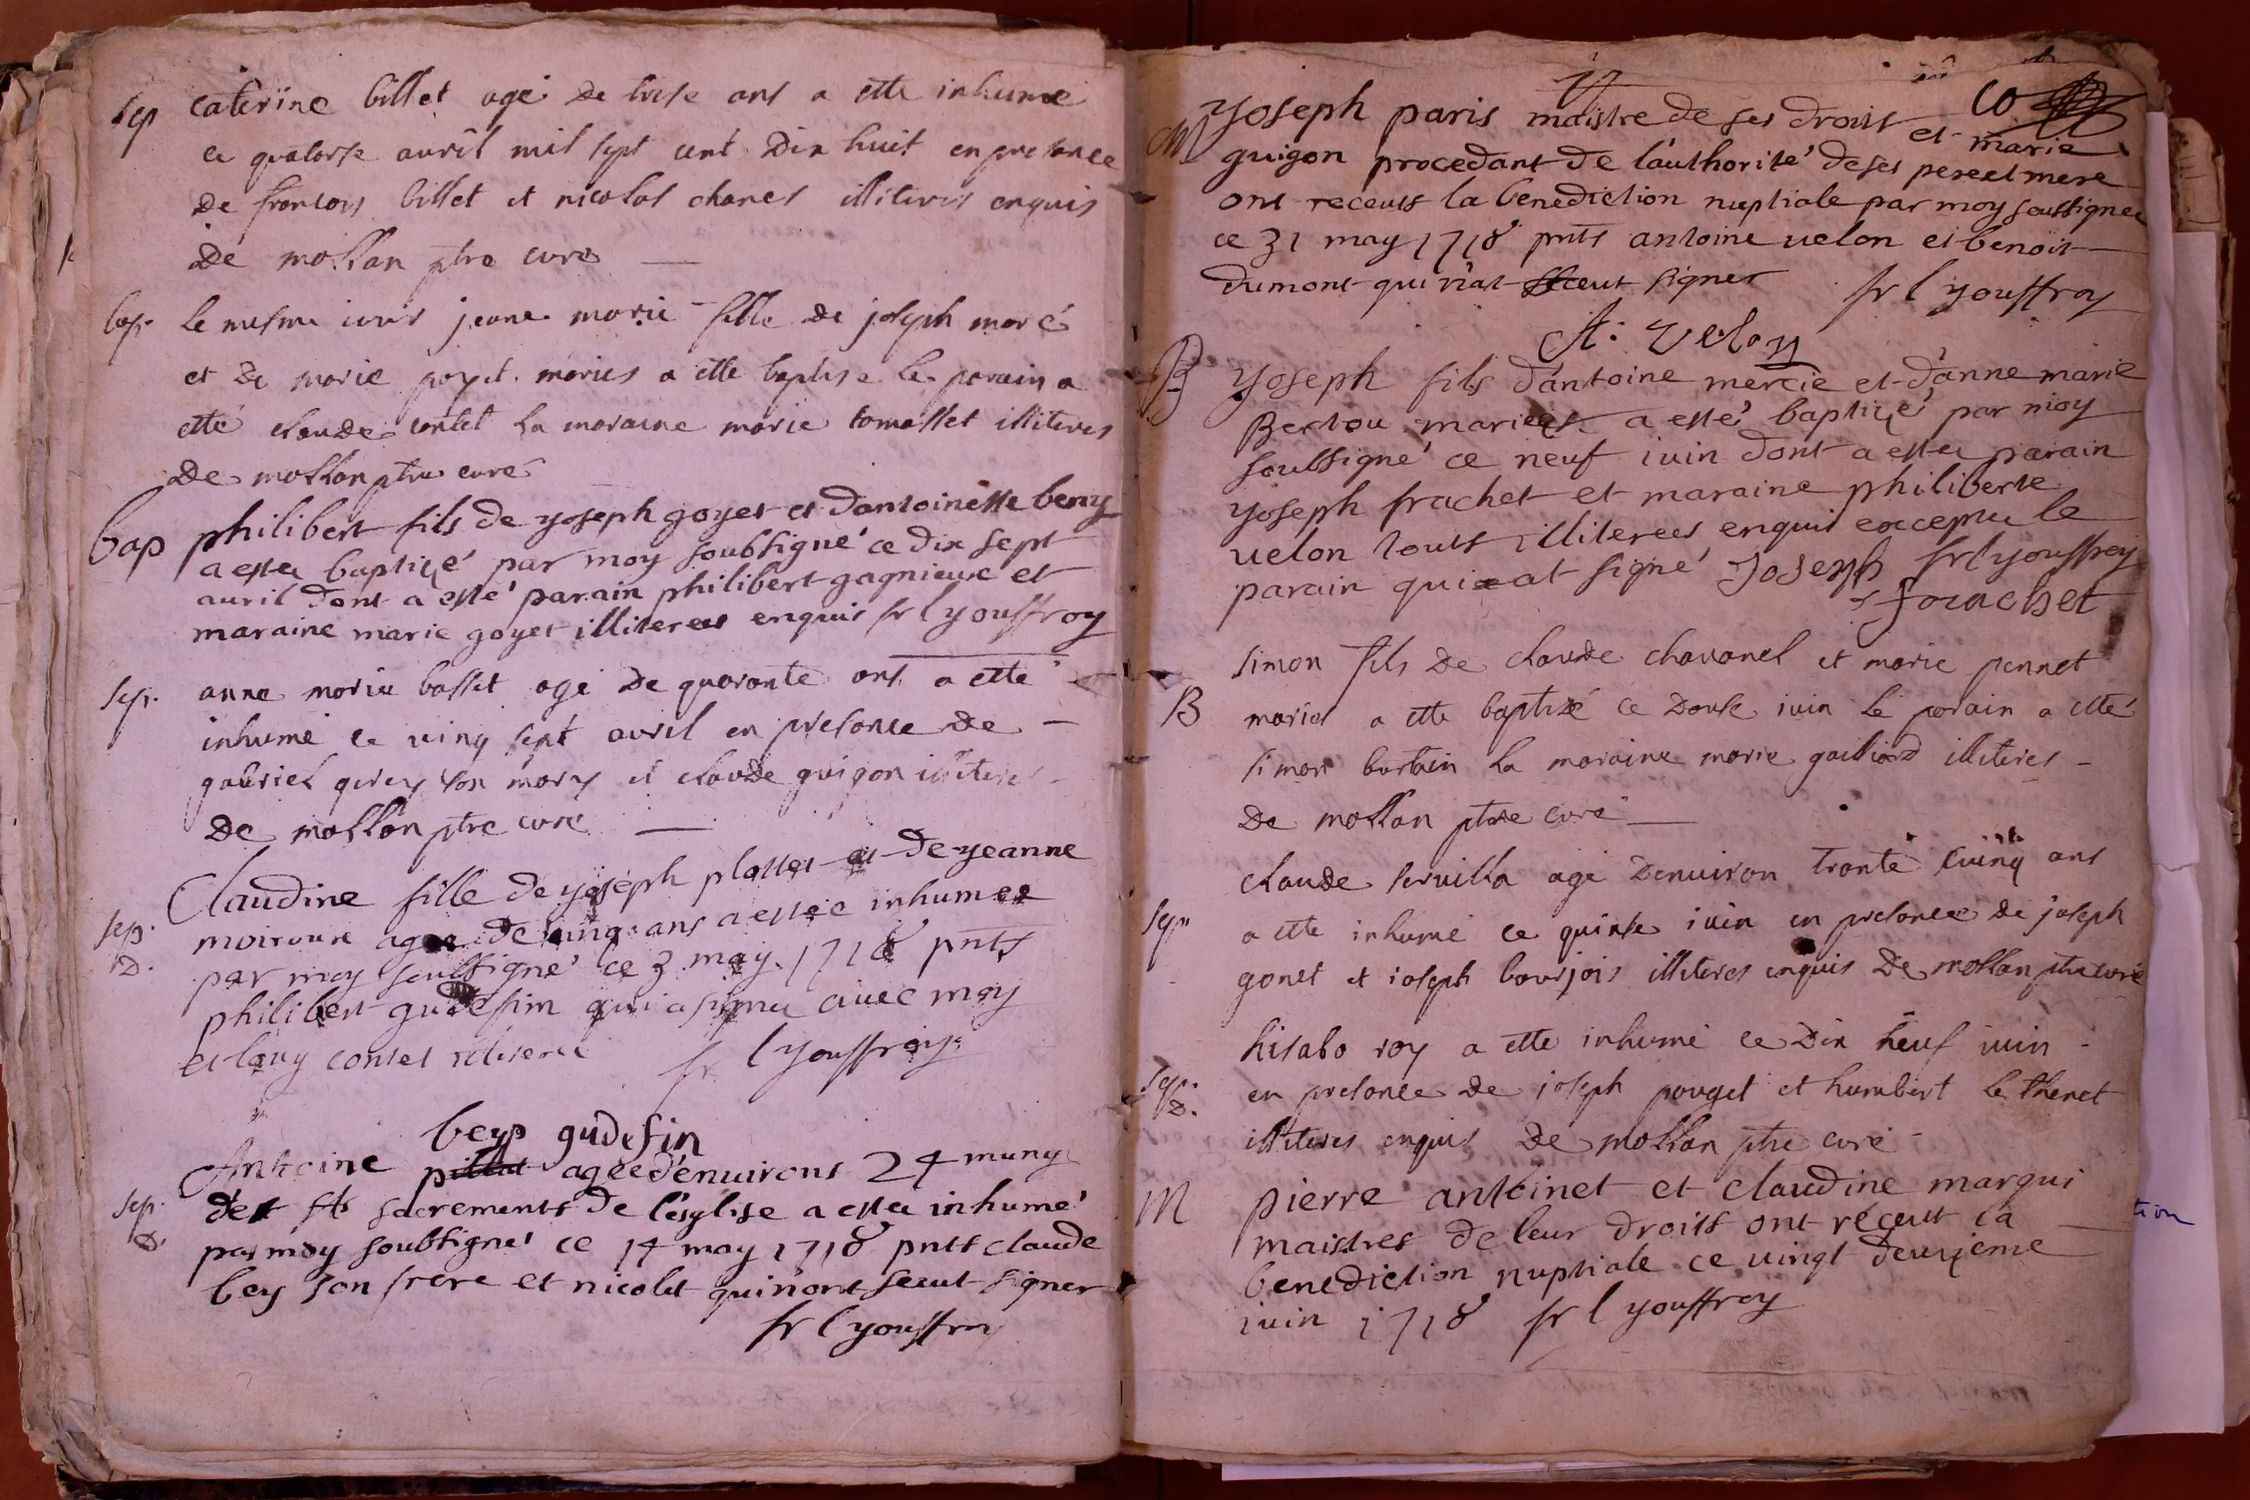 sep caterine billet agé de trese ans a ette inhume
ce quatorse avril mil sept cent dix huit en presence
de francois billet et nicolas chanel illiteres enquis
de mollan ptre curé
bap. le mesme iour jeane marie fille de joseph moré
et de marie poyet mariés a ette baptisé le parain a
etté claude contet la maraine marie tomasset illiteres
de mollan ptre curé
bap philibert fils de yoseph goyet et dantoinette berry
a estee baptizé par moy soubsigné ce dix sept
auril dont a esté parain philibert gagnieux et
maraine marie goyet illiterees enquis fr l youffroy
sep. anne marie basset agé de quarante ans a ette
inhumé ce ving sept avril en presence de
gabriel son mary et claude guigon illiteres
de mollan ptre curé
Claudine fille de yoseph plattet et de yeanne
sep. agee de cinq ans a estee inhumee
D. par moy soubsigné ce 3 may 1718 pnts
philibert gudefin qui a signer auec moy
et contet
fr l youffroy
bey gudefin
Antoine agee d'enuirons 24 muny
sep. des sts sacrements de l'esglise a estee inhumé
D. par moy soubsigné ce 14 may 1718 pnts claude
bey son frere et nicolet qui n'ont sceut signer
fr l youffroy
M yoseph paris maistre de ses droits et marie
guigon procedant de l'authorité de ses pere et mere
ont receuts la benediction nuptiale par moy soussignee
ce 31 may 1718 pnts antoine uelon et benoit
dumont qui n'at sceut signer fr l youffroy
A. velon
B yoseph fils d'antoine mercie et d'anne marie
Bertou mariees a esté baptizé par moy
soubsigné ce neuf iuin dont a estee parain
yoseph frachet et maraine philiberte
uelon touts illiterees enquis exceptee le
parain qui at signé joseph fr l youffroy
frachet
simon fils de claude chavanel et marie pennet
B mariés a ette baptizé ce douse iuin le parain a etté
simon burtin la maraine marie galliard illiteres
de mollan ptre curé
claude servilla agé denuiron trante cinq ans
sep a ette inhumé ce quinse iuin en presence de joseph
gonet et ioseph bourjois illiteres enquis de mollan ptre curé
hisabo roy a ette inhumé ce dix neuf iuin
sep. D. en presence de joseph pouget et humbert le thenet
illiteres enquis de mollan ptre curé
M pierre antoinet et claudine marqui
maistres de leur droits ont receut la
benediction nuptiale ce vingt deuxieme
iuin 1718 fr l youffroy